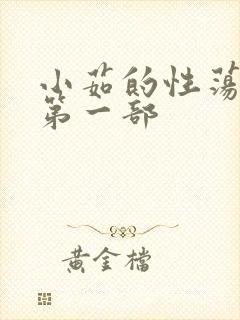 小茹的性蕩
第一部
黄金檔